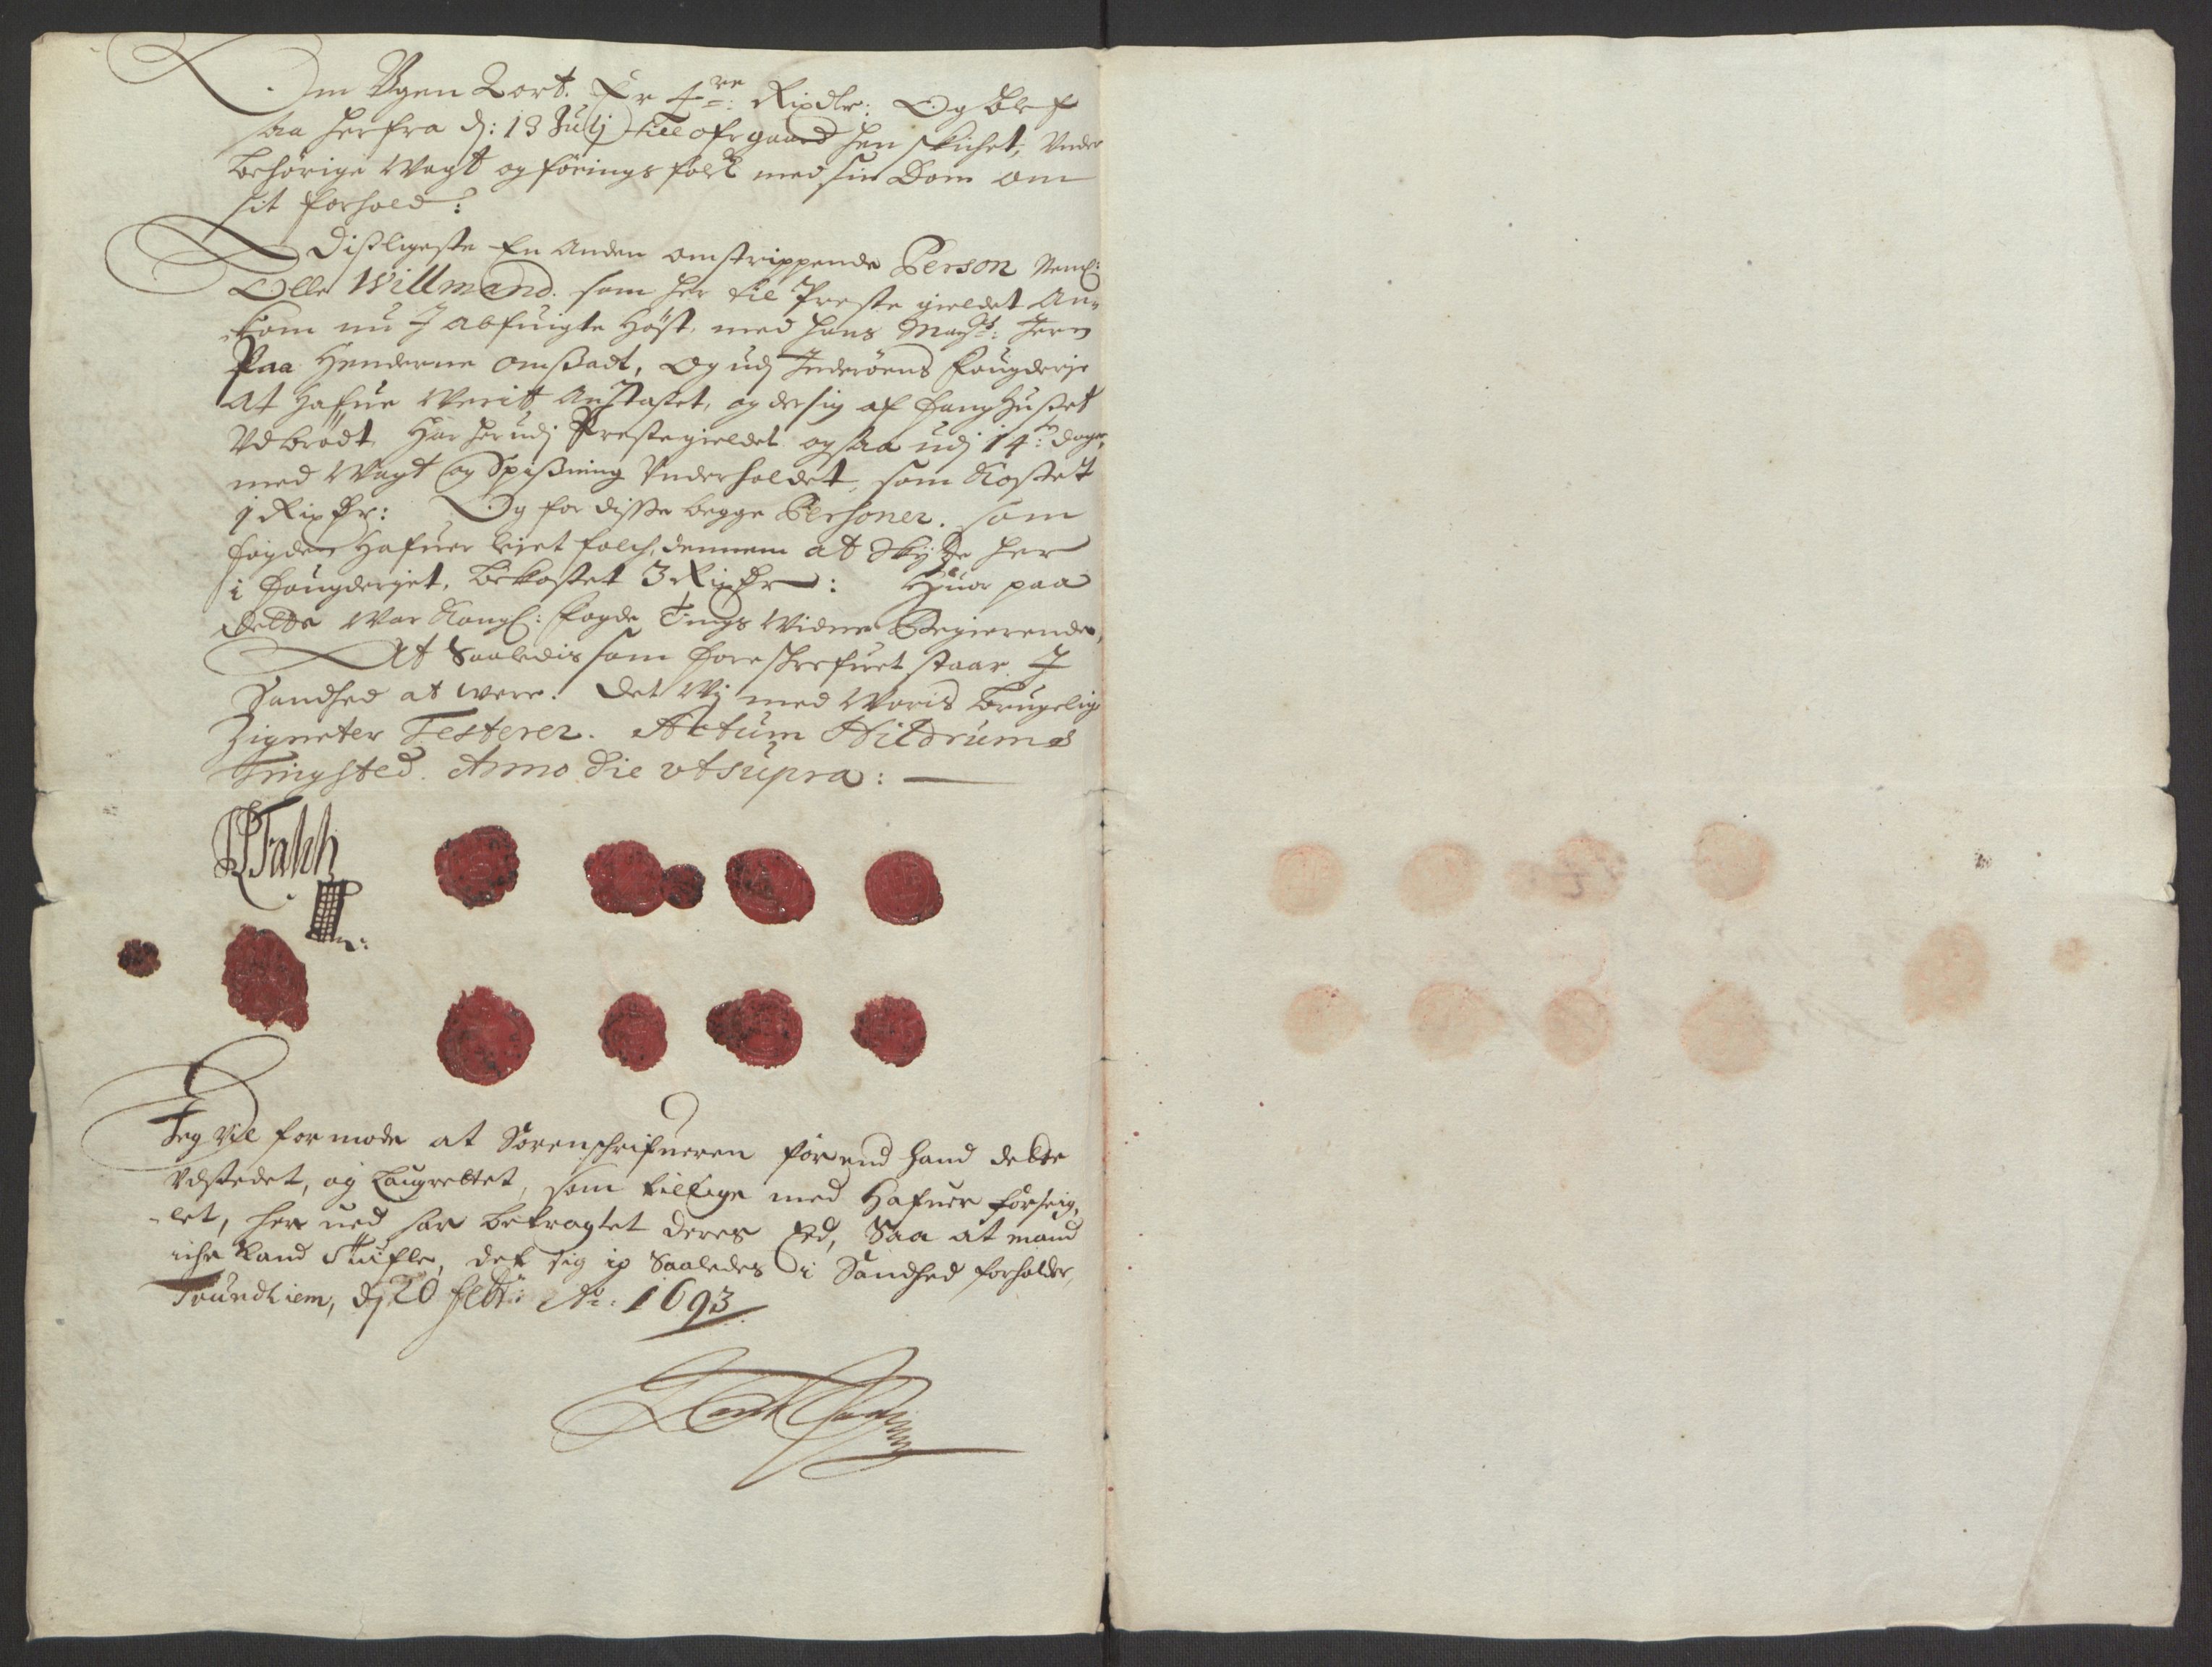 Om Ugen 2 ort. Er 4re: Rixdlr: Og blef
saa herfra dj: 13 Julj till ofr gaard hen skichet, Under
behörige Wagt og föringsfolck med sin Dom om
sit forhold:
Disligeste En Anden omstrippende Person Neml:
Olle Willmand. som her til Prestegieldet An-
kom nu I abfuigte Höst, med hans Mayst: Jern
Paa Henderne omsSadt, Og udj Inderöens fougderje
At Hafue Weritt Antastet, og der sig af fanghuset
Udbrödt, Har her udj Prestegieldet ogsaa udj 14 dage,
med Wagt og Spisning Underholdet, som Kostet
1 Rixdr: Og for disse begge Personer. som
fogden Hafuer leiet folch, dennem at Skydse her
i fougderjet, bekostet 3 Rixdr: Huor paa
dette War Kongl: fogde Tings Widne Begierende,
At Saaledis som forreschrefuet staar I
Sandhed at were. Det Wj med Woris brugelig
Zigneter Testerer. Actum Hildrums
Tingsted. Anno die ut supra:
Jeg vil formode at Sorenschrifueren förend hand dette
Udstedet, og Laugrettet, som tillige med Hafuer forseig-
let, her ued har betragtet deres Ed, Saa at mand
iche kand tuifle, det sig jo Saaledes i Sandhed forholder,
Trundhiem, dj 20 febr: Ao: 1693